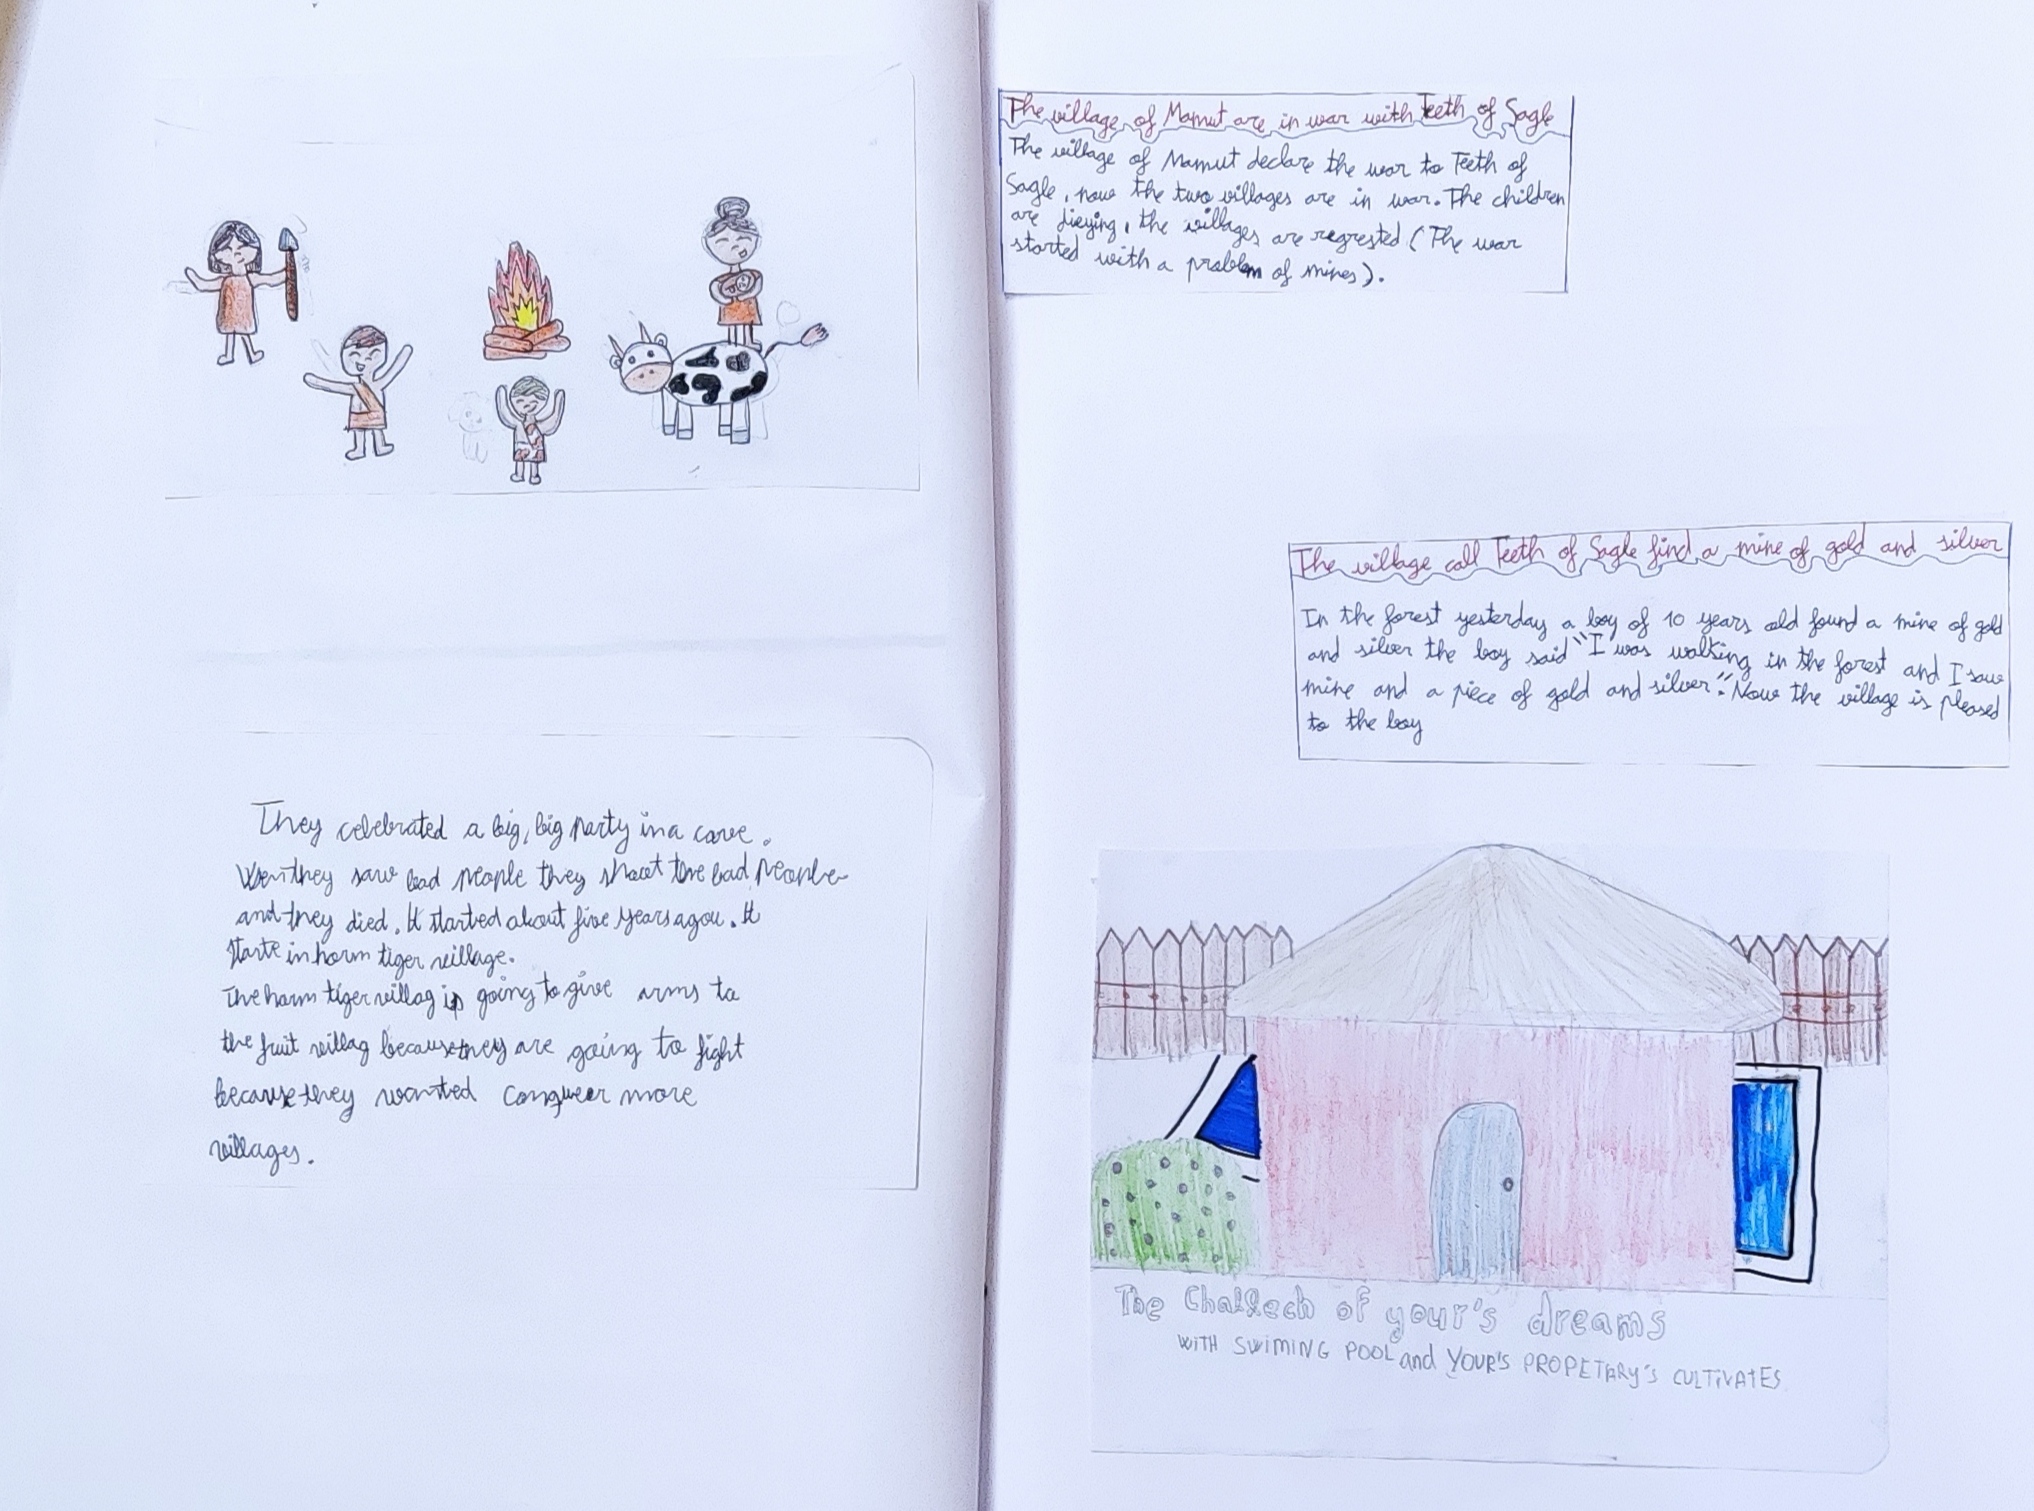 They celebrated a big, big party in a cave.
When they saw bad people they shoot the bad people
and they died. It started about five years agou. It
starte in horm tiger village.
The harm tiger villag is going to give arms to
the fruit villag because they are going to fight
because they wanted conqueer more
villages.
The village of Mamut are in war with Teeth of Sagle
The village of Mamut declare the war to Teeth of
Sagle, now the two villages are in war. The children
are dieying, the villages are regrested (The war
started with a problem of mines).
The village call Teeth of Sagle find a mine of gold and silver
In the forest yesterday a boy of 10 years old found a mine of gold
and silver the boy said "I was walking in the forest and I saw
mine and a piece of gold and silver". Now the village is pleased
to the boy
The of your's dreams
WITH SWIMING POOL and YOUR'S PROPETARY'S CULTIVATES